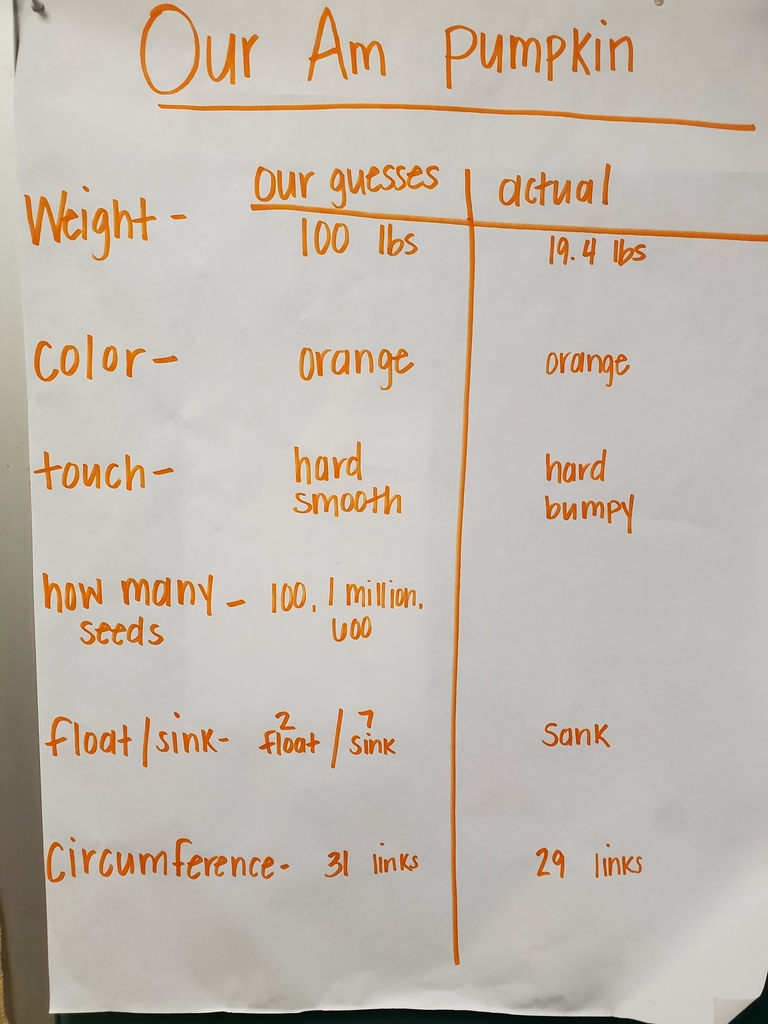 Our Am Pumpkin
our guesses actual
Weight- 100 lbs 19.4 lbs
color- orange orange
touch- hard hard
smooth bumpy
how many - 100, 1 million,
seeds 600
2 7
float/sink- float / sink Sank
Circumference- 31 links 29 links